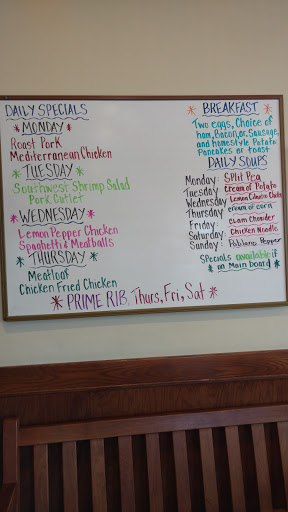 DAILY SPECIALS
* MONDAY *
Roast Pork
Mediterranean Chicken
* TUESDAY *
Southwest Shrimp Salad
Pork Cutlet
* WEDNESDAY *
Lemon Pepper Chicken
Spaghetti & Meatballs
* THURSDAY *
Meatloaf
Chicken Fried Chicken
* PRIME RIB, Thurs, Fri, Sat *
* BREAKFAST *
Two eggs, Choice of
ham, Bacon, or Sausage,
and homestyle Potato
Pancakes or toast
DAILY SOUPS
Monday: Split Pea
Tuesday: Cream of Potato
Wednesday: Lemon Chicken
Thursday: cream of corn
Friday: clam chowder
Saturday: Chicken Noodle
Sunday: Poblano Pepper
Specials available if
on Main board